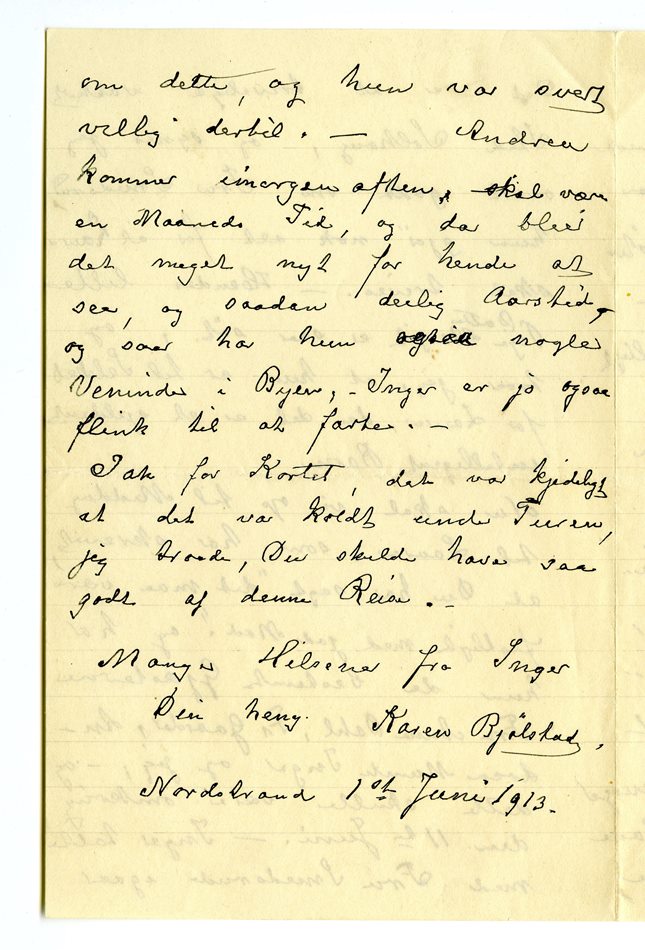 om dette, og hun var svært
villig dertil. — Andrea
kommer imorgen aften, skal være
en Maaneds Tid, og der bliér
det meget nyt for hende at
see, og saadan deilig Aarstid,
og saa har hun ogsaa nogle
Veninder i Byen, – Inger er jo ogsaa
flink til at farte. —
Tak for Kortet, det var kjedeligt
at det var koldt under Turen,
jeg troede, Du skulde have saa
godt af denne Reise. –
Mange Hilsener fra Inger
Din heng. Karen Bjølstad,
Nordstrand 1st Juni 1913.